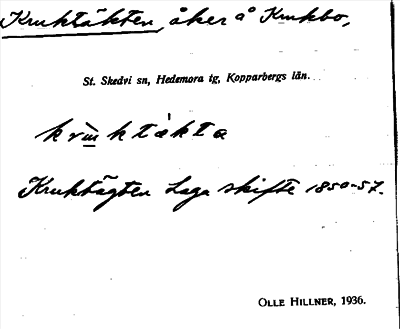 Kruktäkten, åker å Krukbo,
St. Skedvi sn, Hedemora tg, Kopparbergs län.
krùktàkta
Kruktägten Laga skifte 1850-57.
OLLE HILLNER, 1936.